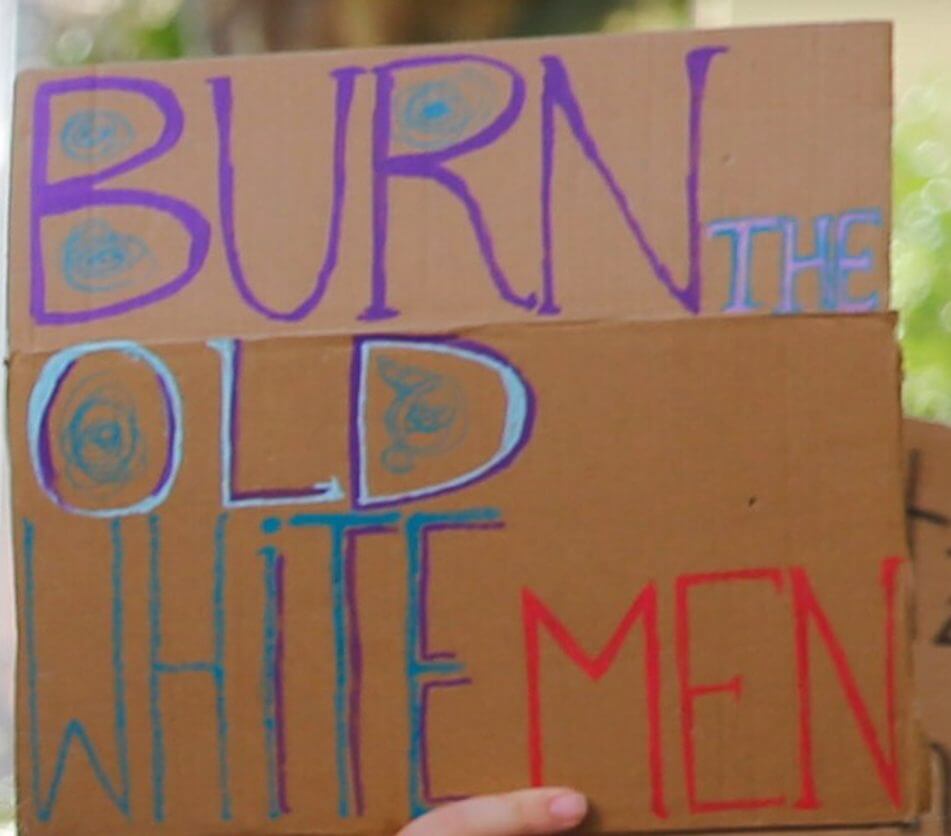 BURN THE
OLD
WHiTE MEN